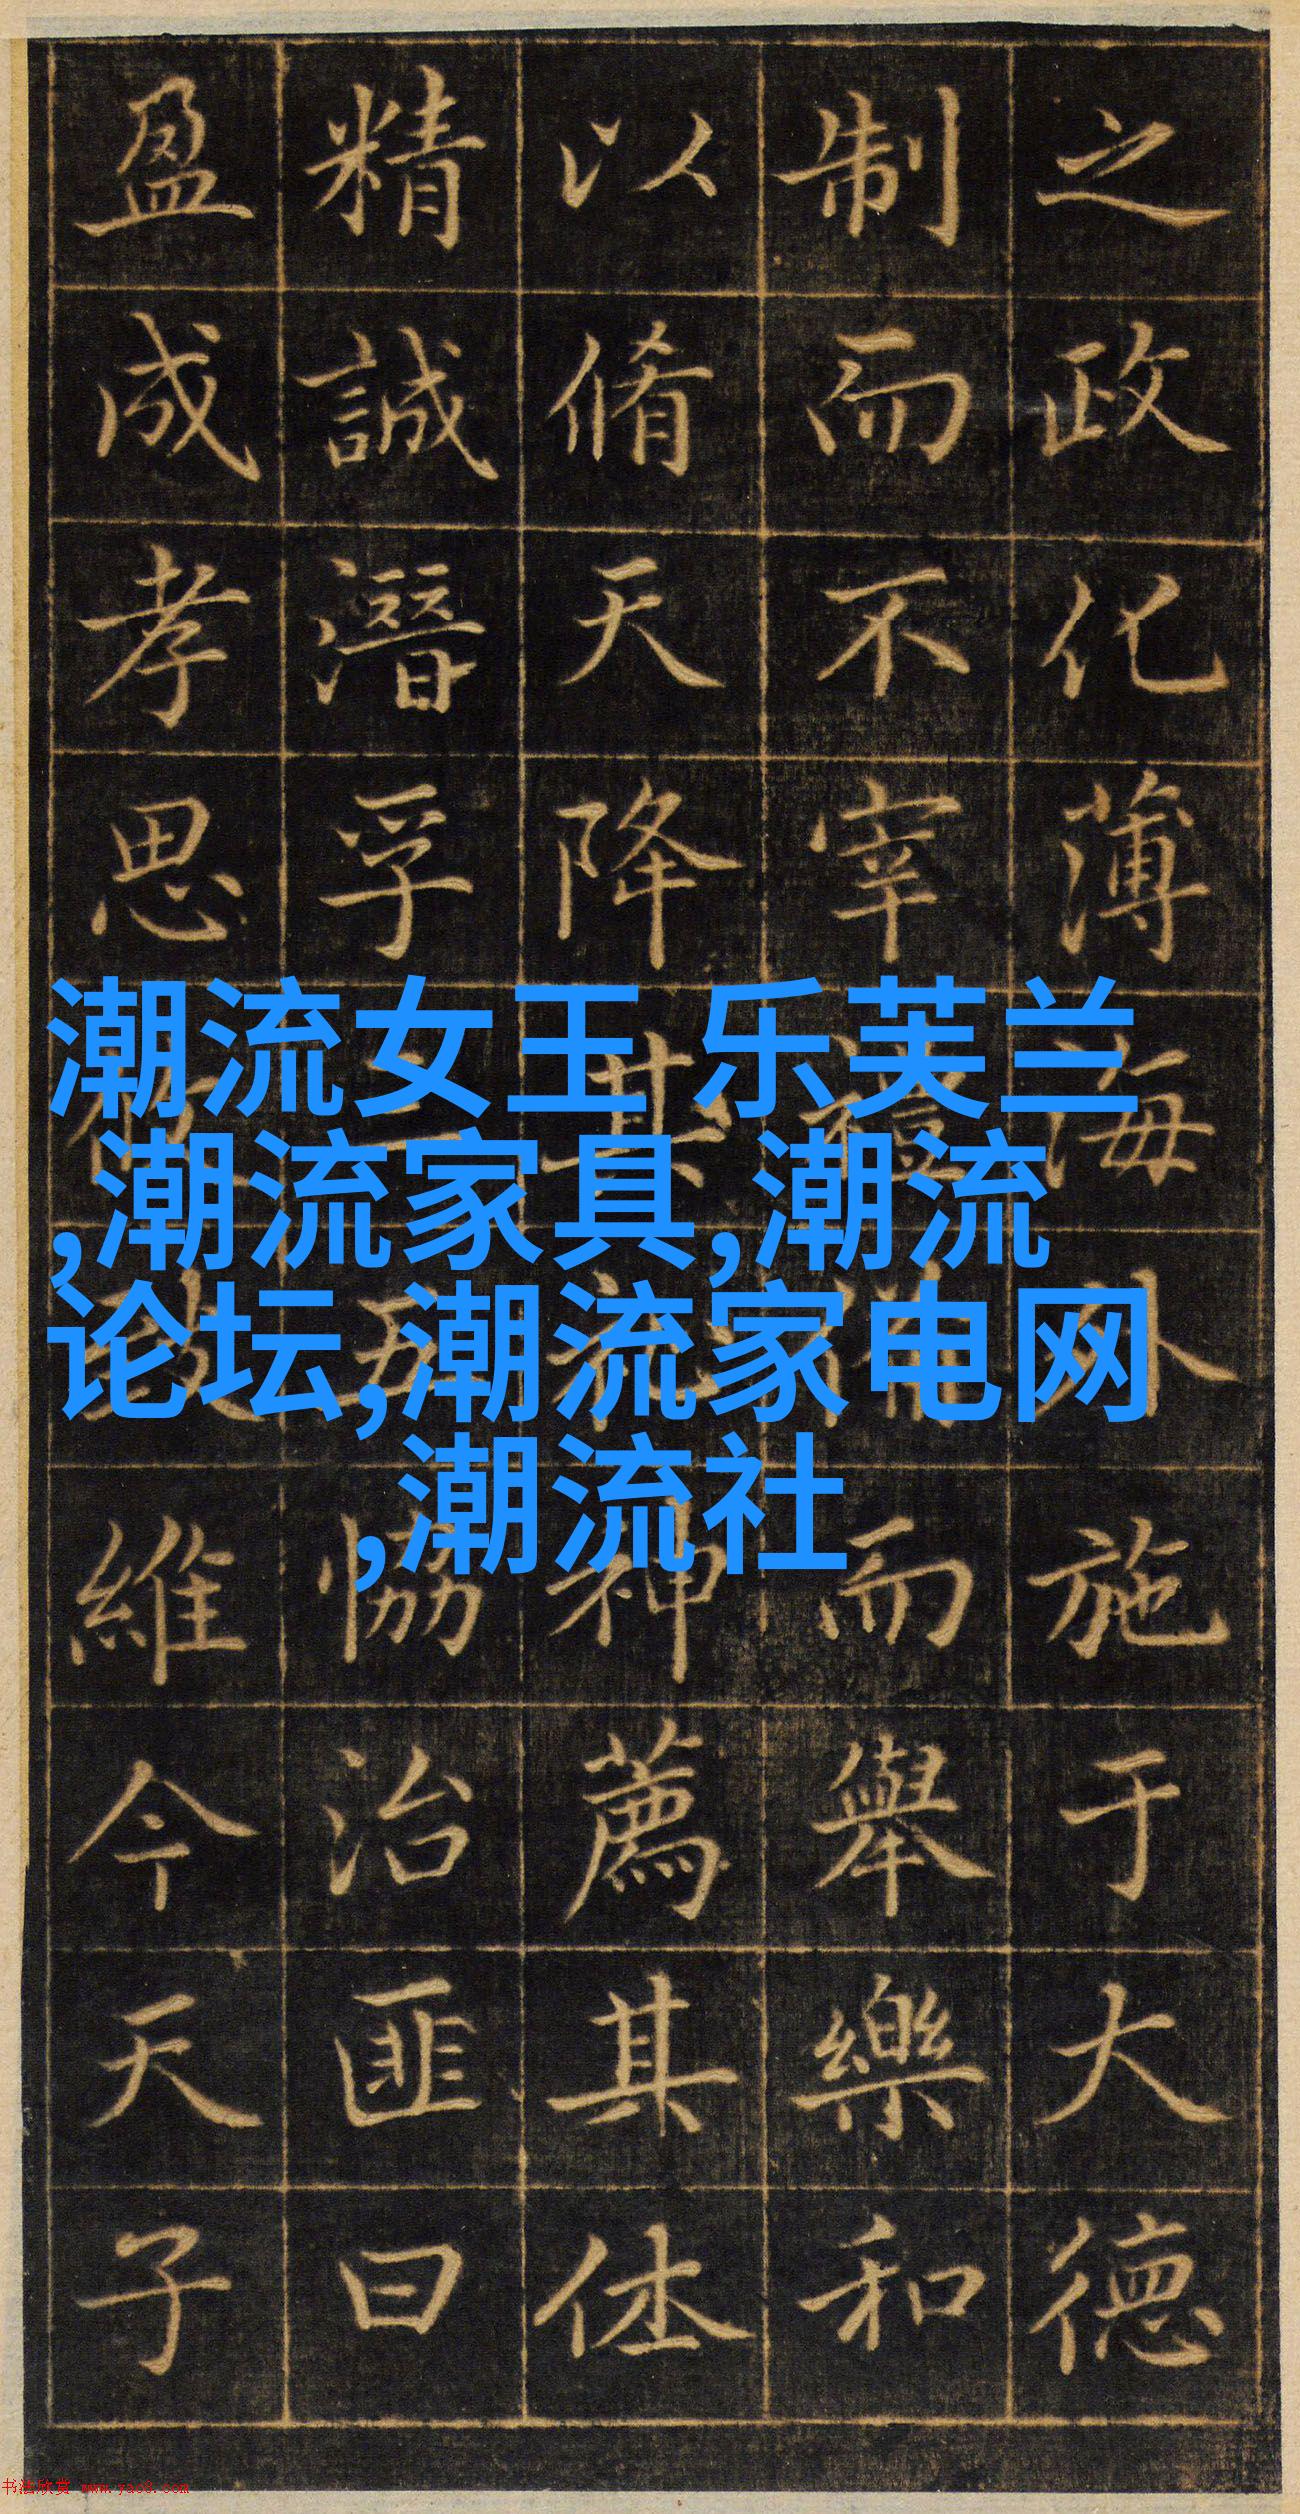 之政化薄海外施于大德
制而不宰禮而舉樂和
以脩天降其礼神薦其体
精誠潛孚五恊治匪曰
盈成孝思維今天子
潮流女王 乐芙兰
,潮流家具,潮流
论坛,潮流家电网
,潮流社
书法欣赏 www.yac8.com